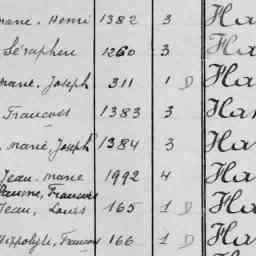 marie. Henri 1382 3 Ha
Séraphin 1260 3 Ha
marie. Joseph 311 1 D Ha
François 1383 3 Han
marie, Joseph 1384 3 Ha
Jean. marie 1992 4 Ha
François
Jean, Louis 165 1 D Ha
Hippolyte, François 166 1 D Ha